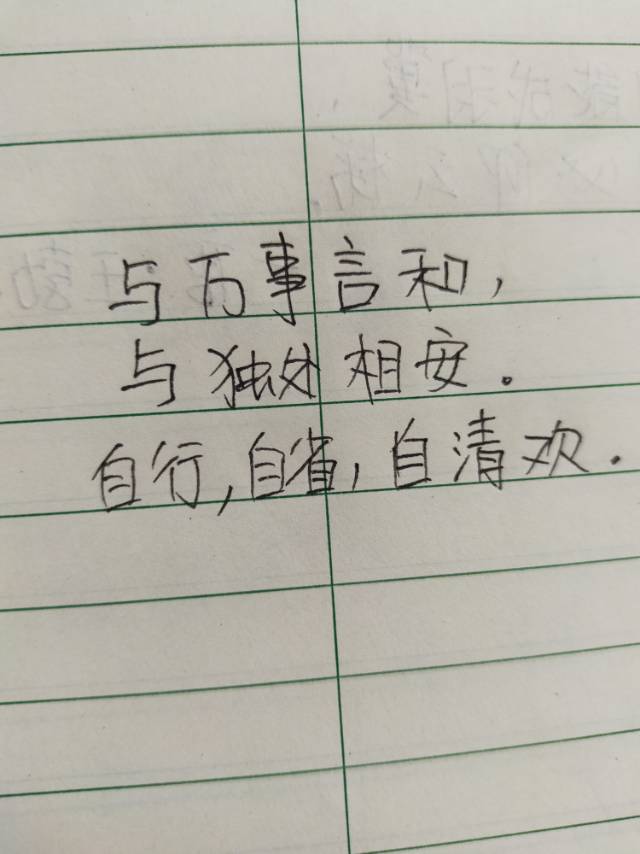 与万事言和，
与独处相安。
自行，自省，自清欢.